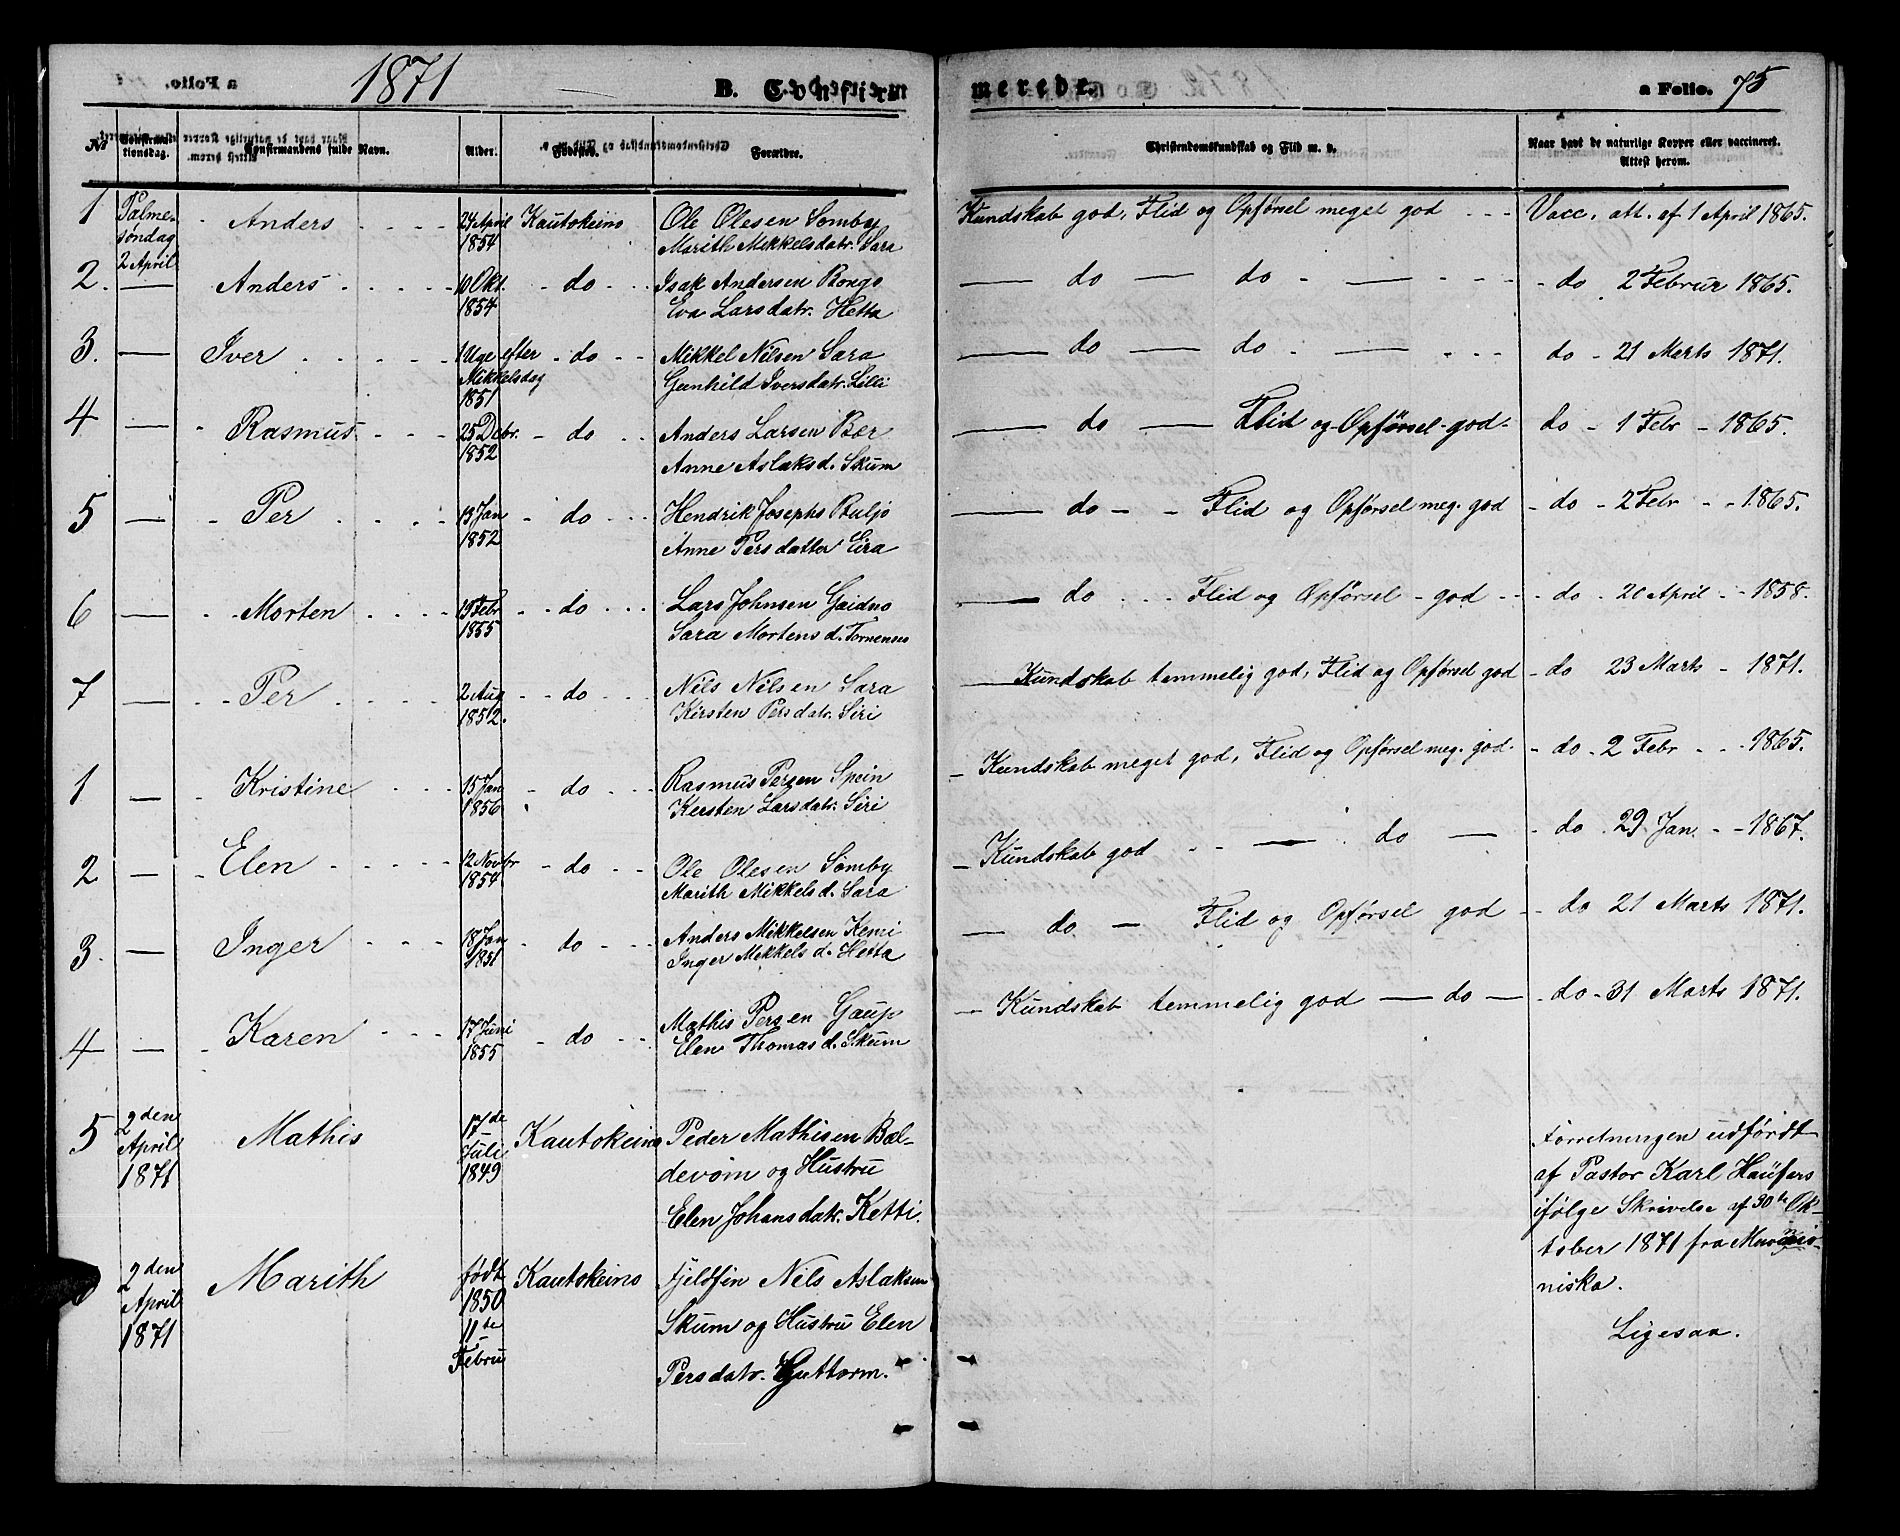 1871 B. Confirmerede. a Folio. 75
No Confirmationsdag. Confirmandens fulde Navn. Alder. Fødested. Forældre. Christendomskundskab og Flid m. v. Naar havt de naturlige Kopper eller vaccineret. Attest herom.
1 Palme- Anders 24 April Kautokeino Ole Olesen Somby Kundskab god, Flid og Opførsel meget god Vacc. att. af 1 April 1865.
søndag 1854 Marith Mikkelsdatr. Sara
2 April
2. — Anders 10 Okt. do Isak Andersen Bongo — do — do — do 2 Februr 1865.
1854 Eva Larsdatr. Hetta
3. — Iver 1 Uge efter do Mikkel Nilsen Sara — do — do — do 21 Marts 1871.
Mikkelsdag Gunhild Iversdatr. Lilli
1851
4 — Rasmus 25 Dcbr. do Anders Larsen Bær — do — Flid og Opførsel god do 1 Febr 1865.
1852 Anne Aslaksd. Skum
5 — Per 13 Jan do Hendrik Josephs Buljo — do Flid og Opførsel meg. god do 2 Febr 1865.
1852 Anne Persdatter Eira
6 — Morten 19 Febr do Lars Johnsen Gaidno — do Flid og Opførsel god do 20 April 1858.
1855 Sara Mortens d. Tornensis
7 — Per 2 Aug do Nils Nilsen Sara — Kundskab temmelig god, Flid og Opførsel god do 23 Marts 1871.
1852. Kirsten Persdatr. Siri
1 — Kristine 15 Jan do Rasmus Persen Spein — Kundskab meget god, Flid og Opførsel meg. god do 2 Febr 1865.
1856 Kersten Larsdatr. Siri
2 — Elen 12 Novbr do Ole Olesen Somby — Kundskab god — do — do 29 Jan 1867.
1854 Marith Mikkels d. Sara
3. — Inger 18 Jan do Anders Mikkelsen Kemi — do — Flid og Opførsel god do 21 Marts 1871.
1851 Inger Mikkels d. Hetta
4 — Karen 17 Juni do Mathis Persen Gaup — Kundskab temmelig god — do — do 31 Marts 1871.
1855 Elen Thomas d. Skum
5 2den Mathis 17de Kautokeino Peder Mathisen Bal- Forretningen udførdt
April Juli devom og Hustru af Pastor Karl
1871 1849 Elen Johansdatr. Ketti. ifølge Skrivelse af 30te Ok-
tober 1871 fra Muonio-
2den Marith født Kautokeino Fjeldfin Nils Aslaksen niska.
April 1850 Skum og Hustru Elen Ligesaa.
1871 11te Persdatr. Guttorm.
Febru